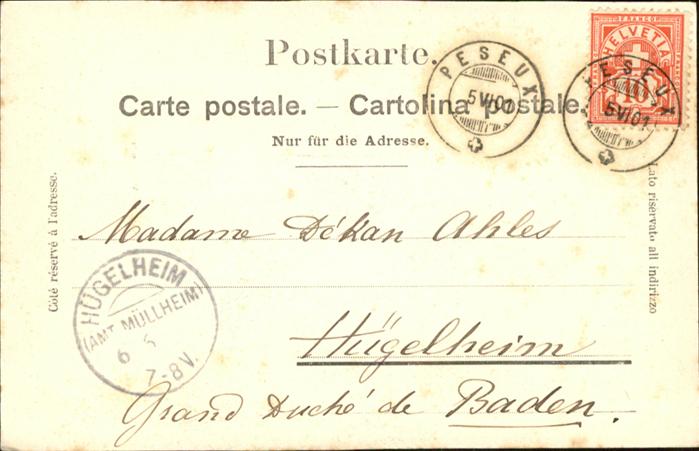 FRANCO
HELVETIA
10
Postkarte.
PESEUX
5 VI 01
PESEUX
5 VI 01
Carte postale. — Cartolina postale.
Nur für die Adresse.
Côté réservé à l'adresse.
Lato riservato all indirizzo
Madame Dékan Ahles
HÜGELHEIM
(AMT MÜLLHEIM)
6
7-8 V.
Hügelheim
Grand Duché de Baden.